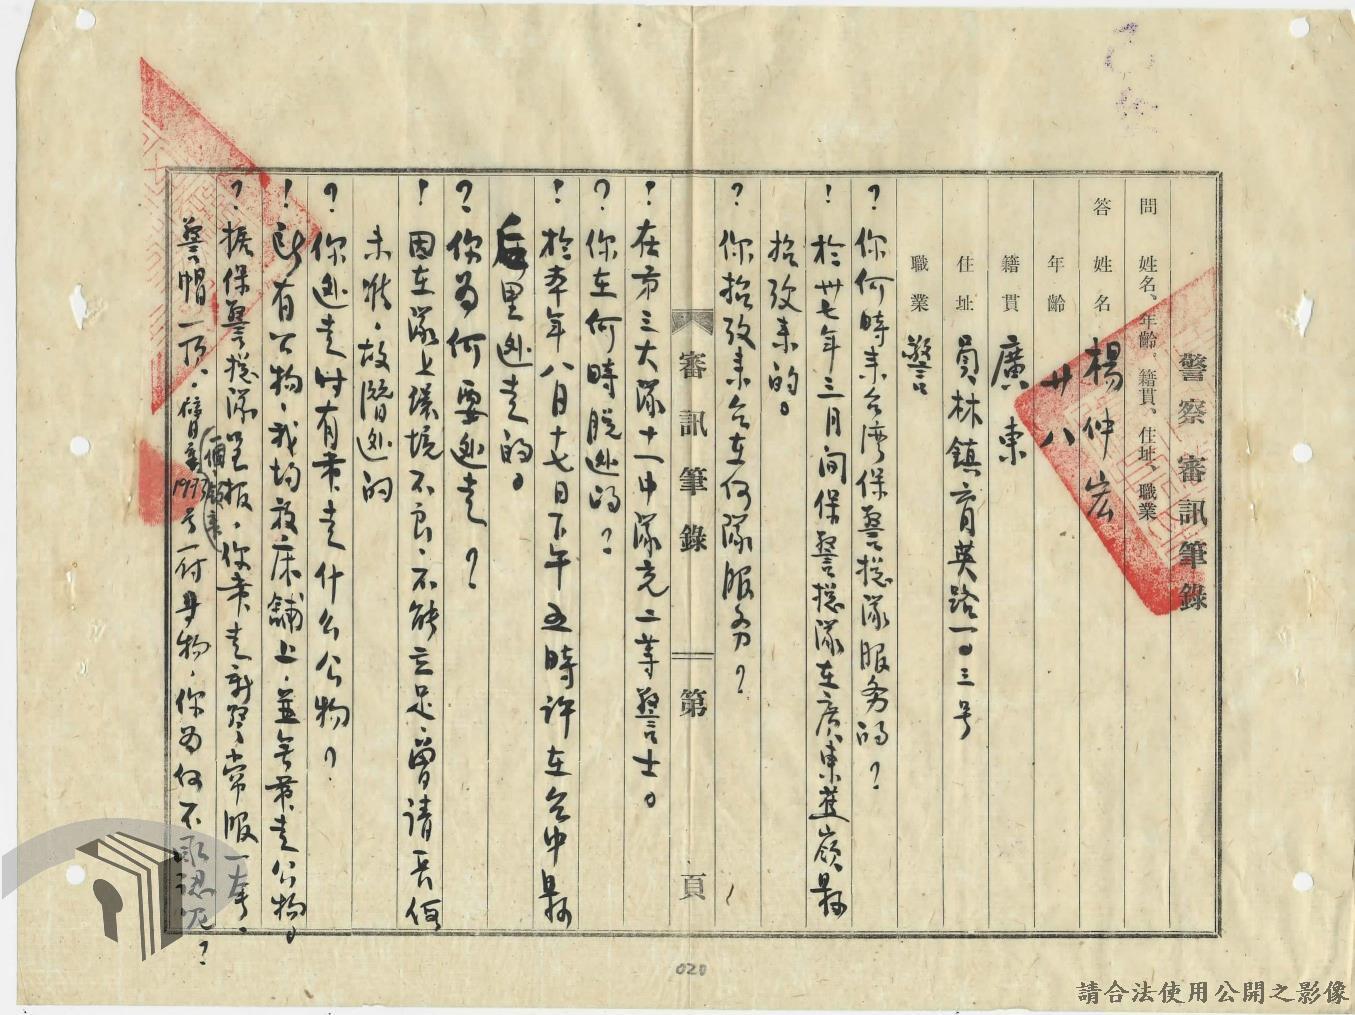 警察審訊筆錄
問 姓名、年齡。籍貫、住址、職業
答 姓名 楊仲宏
年齡 廿八
籍貫 廣東
住址 員林鎮育英路一0三号
職業 警
？你何時来台湾保警揔隊服务的？
！於卅七年三月间保警揔隊在广東蕉嶺縣
招攷来的。
？你招攷来台在何隊服务？
！在第三大隊十一中隊充二等警士。
審訊筆錄 第 頁
？你在何時脱逃的？
！於本年八月十七日下午五時许在台中縣
后里逃走的。
？你為何要逃走？
！因在隊上环境不良，不能立足，曾请長假
未准，故潛逃的
？你逃走时有帯走什么公物？
！所有公物，我均放床舖上，並无帯走公物。
？据保警揔隊呈报，你帯走新警常服一套，
警帽一顶，臂章1973号一付 物，你為何不承認呢？
020
請合法使用公開之影像